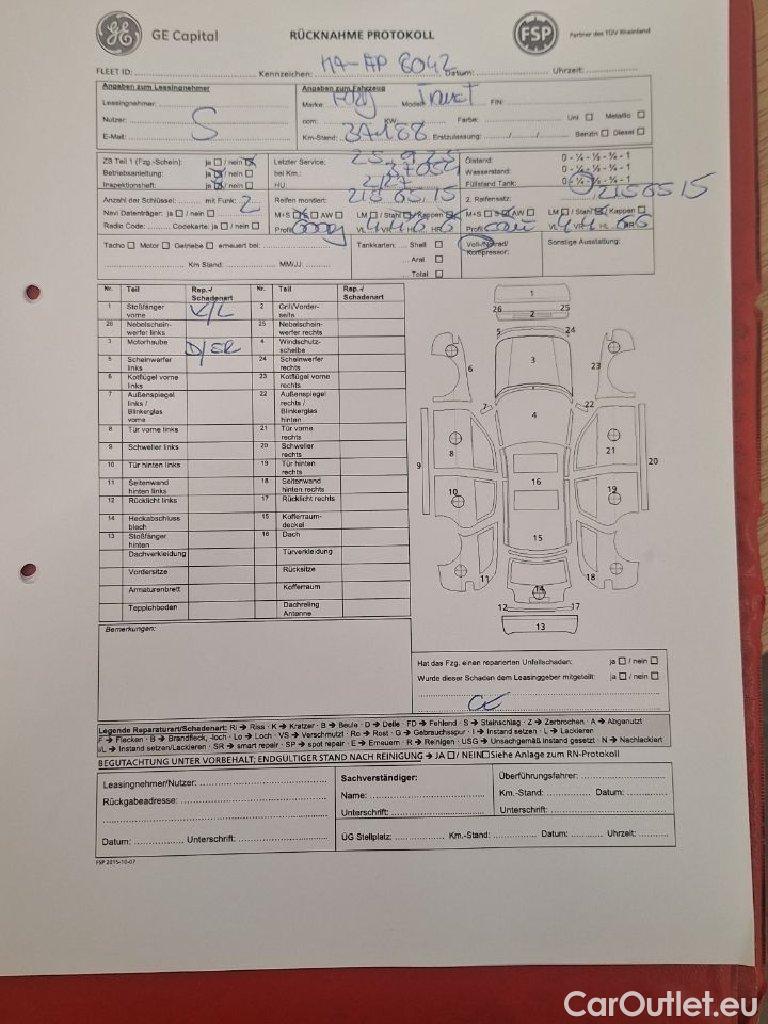 GE Capital RÜCKNAHME PROTOKOLL FSP Partner des TÜV Rheinland
FLEET ID: Kennzeichen: MA-AP 8042 Datum: Uhrzeit:
Angaben zum Leasingnehmer Angaben zum Fahrzeug
Leasingnehmer: Marke Modell FIN:
Nutzer: S ccm: KW: Farbe: Uni Metallic
E-Mail: Km-Stand: Erstzulassung: / / Benzin Diesel
ZB Teil 1 (Fzg.-Schein): ja / nein Letzter Service: Ölstand: 0 - ¼ - ½ - ¾ - 1
Betriebsanleitung: ja / nein bei Km.: Wasserstand: 0 - ¼ - ½ - ¾ - 1
Inspektionsheft: ja / nein HU: 2/27 Füllstand Tank: 0 - ¼ - ½ - ¾ - 1
Anzahl der Schlüssel: mit Funk: 2 Reifen montiert: 215 65,15 2. Reifensatz: 215 65 15
Navi Datenträger: ja / nein M+S S AW LM / Stahl / Kappen M+S S AW LM / Stahl / Kappen
Radio Code: Codekarte: ja / nein Profil VL VR HL HR Profil VL VR HL HR
Tacho Motor Getriebe erneuert bei: Tankkarten: Shell Voll-/Notrad/ Sonstige Ausstattung:
Kompressor:
Aral
Km Stand: MM/JJ: Total
Nr. Teil Rep.-/ Schadenart Nr. Teil Rep.-/ Schadenart
1 Stoßfänger vorne 2 Grill/Vorder-seite
26 Nebelschein-werfer links 25 Nebelschein-werfer rechts
3 Motorhaube 4 Windschutz-scheibe
5 Scheinwerfer links 24 Scheinwerfer rechts
6 Kotflügel vorne links 23 Kotflügel vorne rechts
7 Außenspiegel links / Blinkerglas vorne 22 Außenspiegel rechts / Blinkerglas hinten
8 Tür vorne links 21 Tür vorne rechts
9 Schweller links 20 Schweller rechts
10 Tür hinten links 19 Tür hinten rechts
11 Seitenwand hinten links 18 Seitenwand hinten rechts
12 Rücklicht links 17 Rücklicht rechts
14 Heckabschluss blech 15 Kofferraum-deckel
13 Stoßfänger hinten 16 Dach
Dachverkleidung Türverkleidung
Vordersitze Rücksitze
Armaturenbrett Kofferraum
Teppichboden Dachreling Antenne
1
26 25
2
5 24
6 3 23
7 22
4
8 21
9 20
16
10 19
15
11 18
14
12 17
13
Bemerkungen:
Hat das Fzg. einen reparierten Unfallschaden: ja / nein
Wurde dieser Schaden dem Leasinggeber mitgeteilt: ja / nein
Legende Reparaturart/Schadenart: Ri → Riss · K → Kratzer · B → Beule · D → Delle · FD → Fehlend · S → Steinschlag · Z → Zerbrochen · A → Abgenutzt
F → Flecken · B → Brandfleck, -loch · Lo → Loch · VS → Verschmutzt · Ro → Rost · G → Gebrauchsspur · I → Instand setzen · L → Lackieren
I/L → Instand setzen/Lackieren · SR → smart repair · SP → spot repair · E → Erneuern · R → Reinigen · USG → Unsachgemäß instand gesetzt · N → Nachlackiert
BEGUTACHTUNG UNTER VORBEHALT; ENDGÜLTIGER STAND NACH REINIGUNG → JA / NEIN Siehe Anlage zum RN-Protokoll
Leasingnehmer/Nutzer: Sachverständiger: Überführungsfahrer:
Rückgabeadresse: Name: Km.-Stand: Datum:
Unterschrift: Unterschrift:
Datum: Unterschrift: ÜG Stellplatz: Km.-Stand: Datum: Uhrzeit:
FSP 2015-10-07
CarOutlet.eu